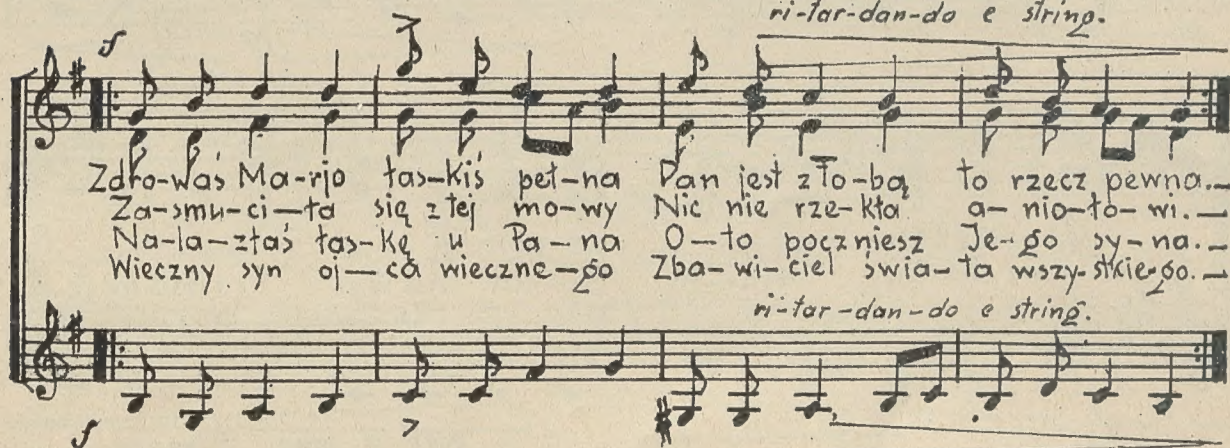 ri-tar-dan-do e string.
f
Zdro-waś Ma-rjo łas-kiś peł-na Pan jest z To-bą to rzecz pewna.
Za-smu-ci-ła się z tej mo-wy Nic nie rze-kła a-nio-ło-wi.
Na-la-złaś łas-kę u Pa-na O-to poczniesz Je-go sy-na.
Wieczny syn oj-ca wieczne-go Zba-wi-ciel świa-ta wszy-stkie-go.
ri-tar-dan-do e string.
f